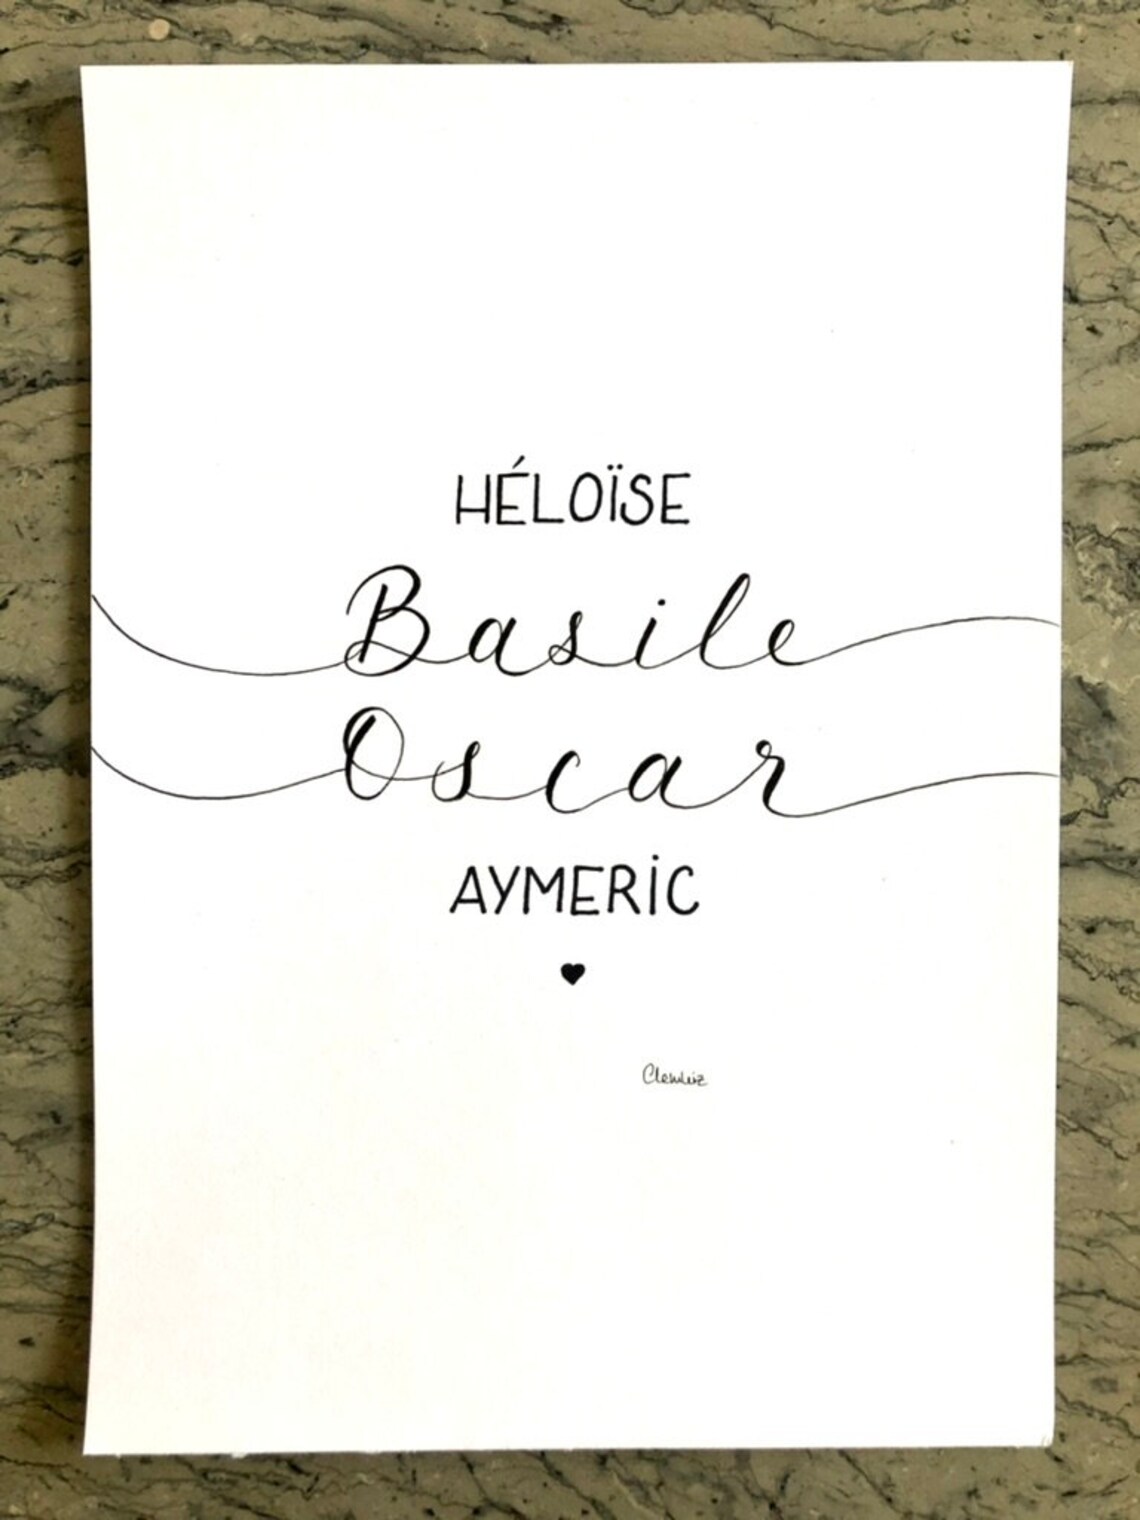 HÉLOÏSE
Basile
Oscar
AYMERIC